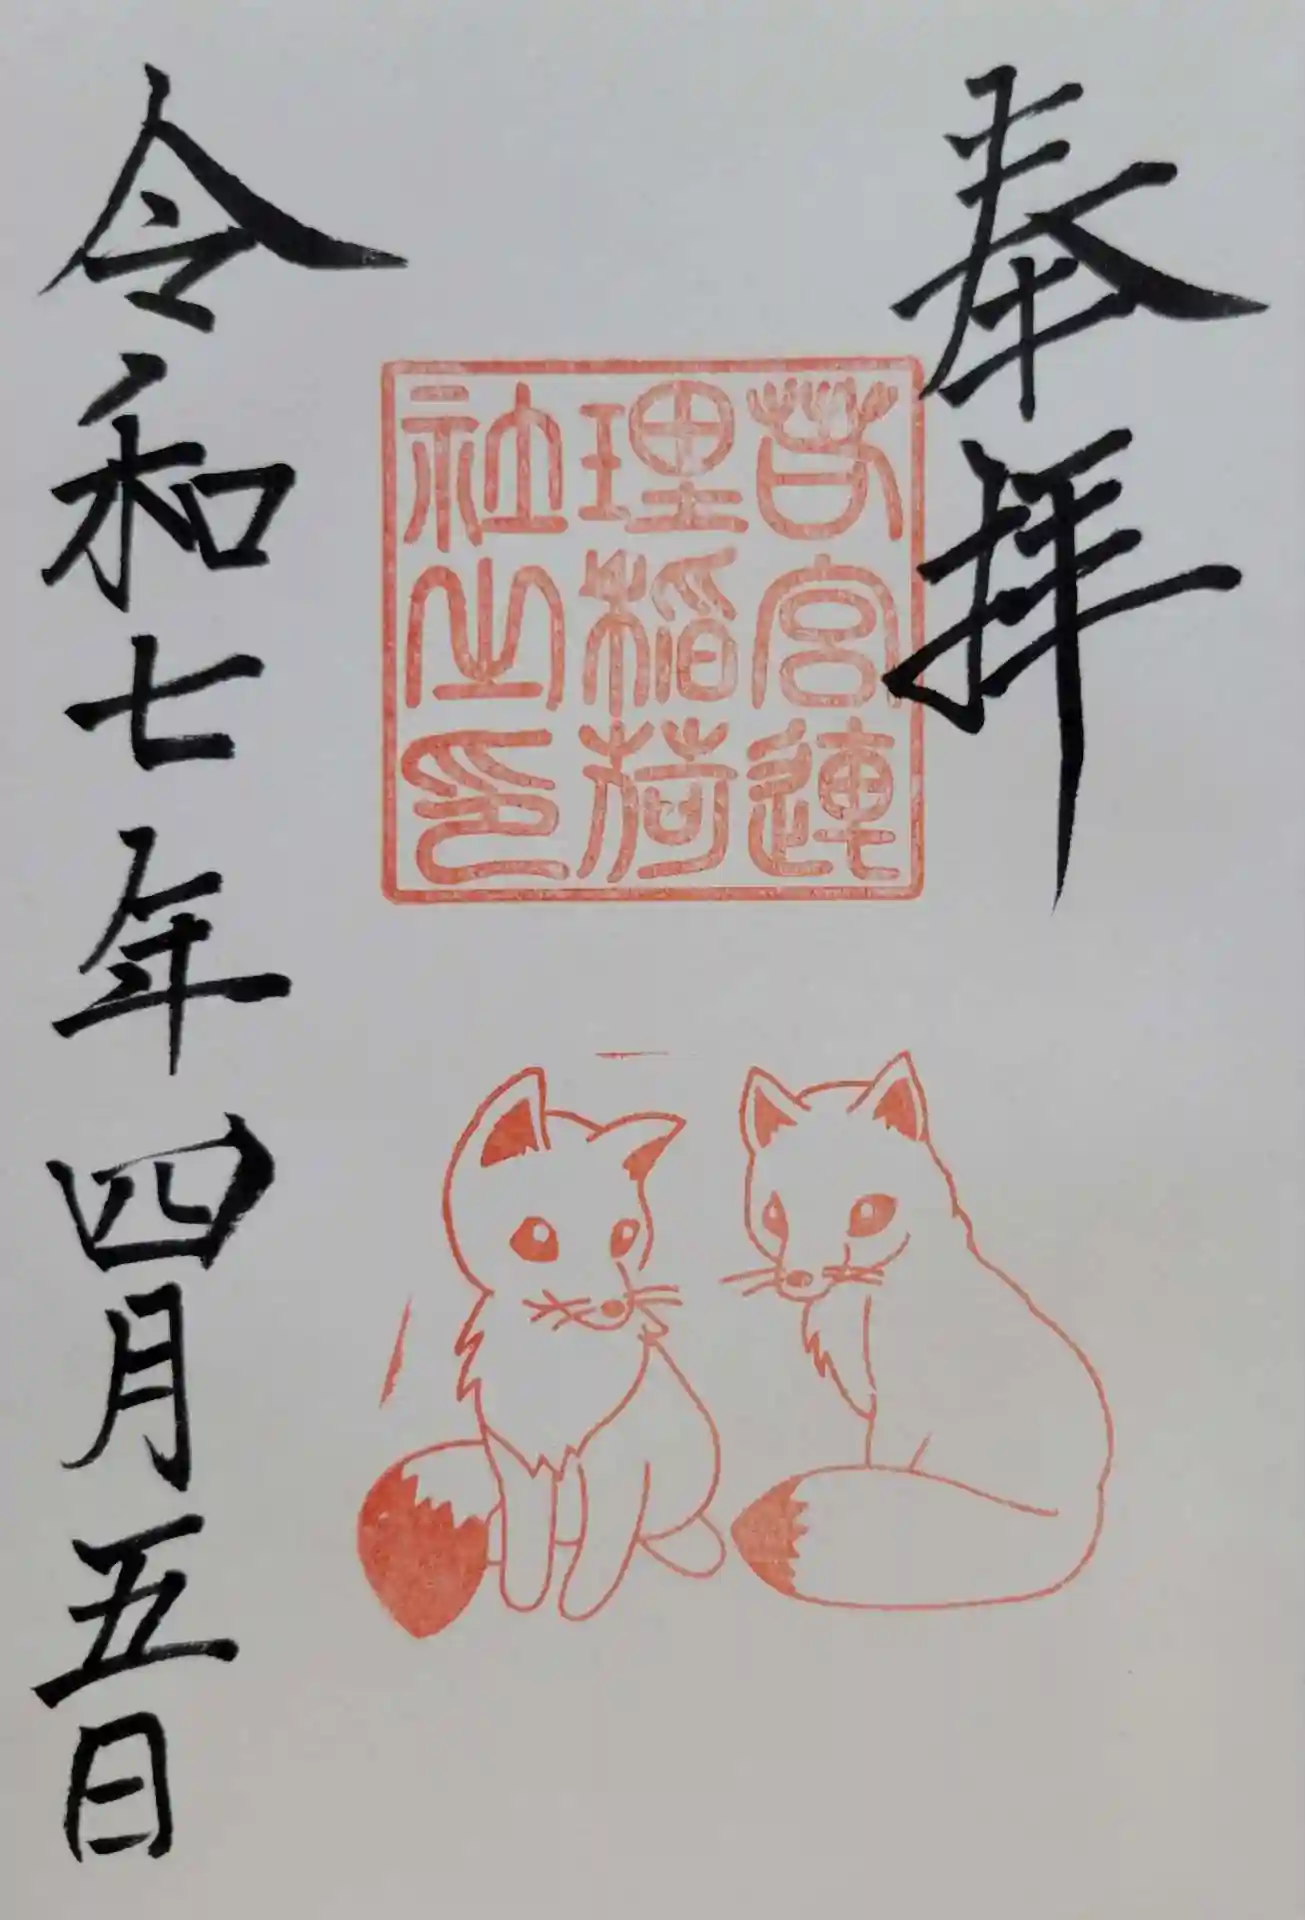 奉拝
若宮連
理稲荷
社之印
令和七年四月五日